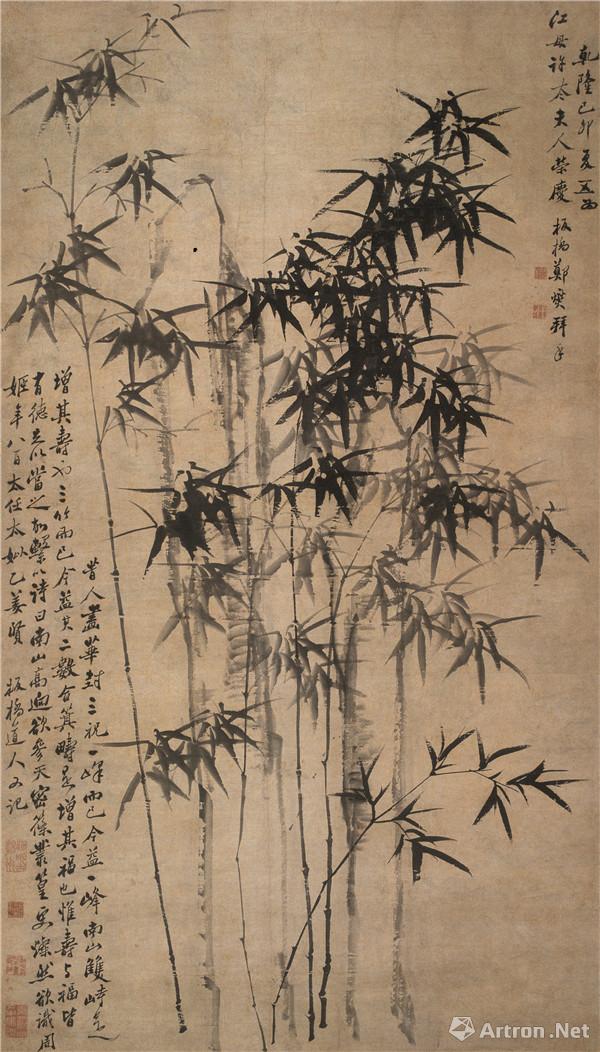 乾隆己卯夏五為
江母許太夫人榮慶 板橋鄭燮拜手
昔人畫華封三祝一峰而已今益一峰南山雙峙足
增其壽也三竹而已今益其二數合箕疇是增其福也惟壽与福皆
有德足以當之爰繫以詩曰南山高迥欲參天密篠叢篁更燦然欲識周
姬年八百太任太姒乙姜賢 板橋道人又記
Artron.Net